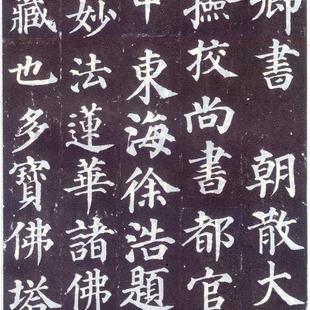 卿書 朝散大
撿校尚書都官
中東海徐浩題
妙法蓮華諸佛
藏也多寶佛塔